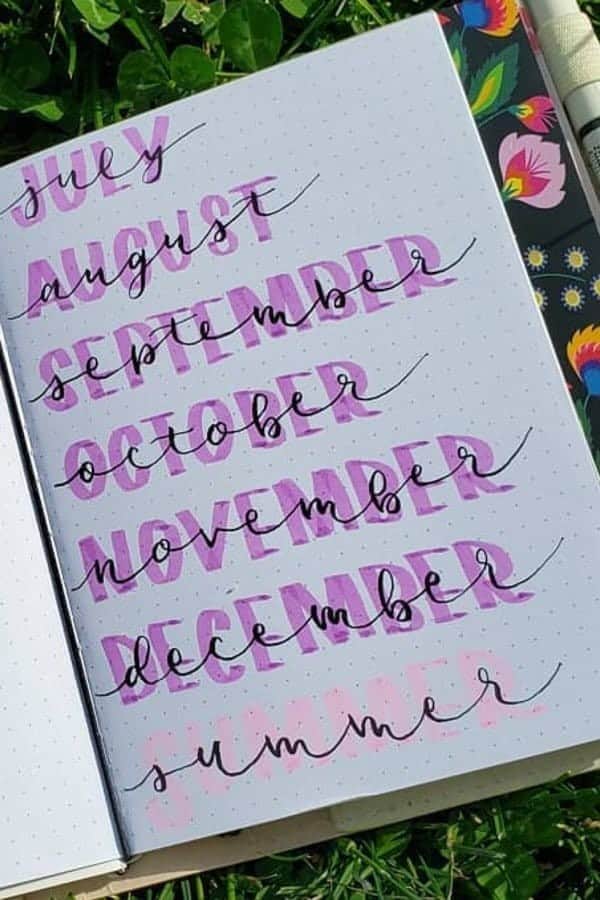 JULY
july
AUGUST
august
SEPTEMBER
september
OCTOBER
october
NOVEMBER
november
DECEMBER
december
SUMMER
summer